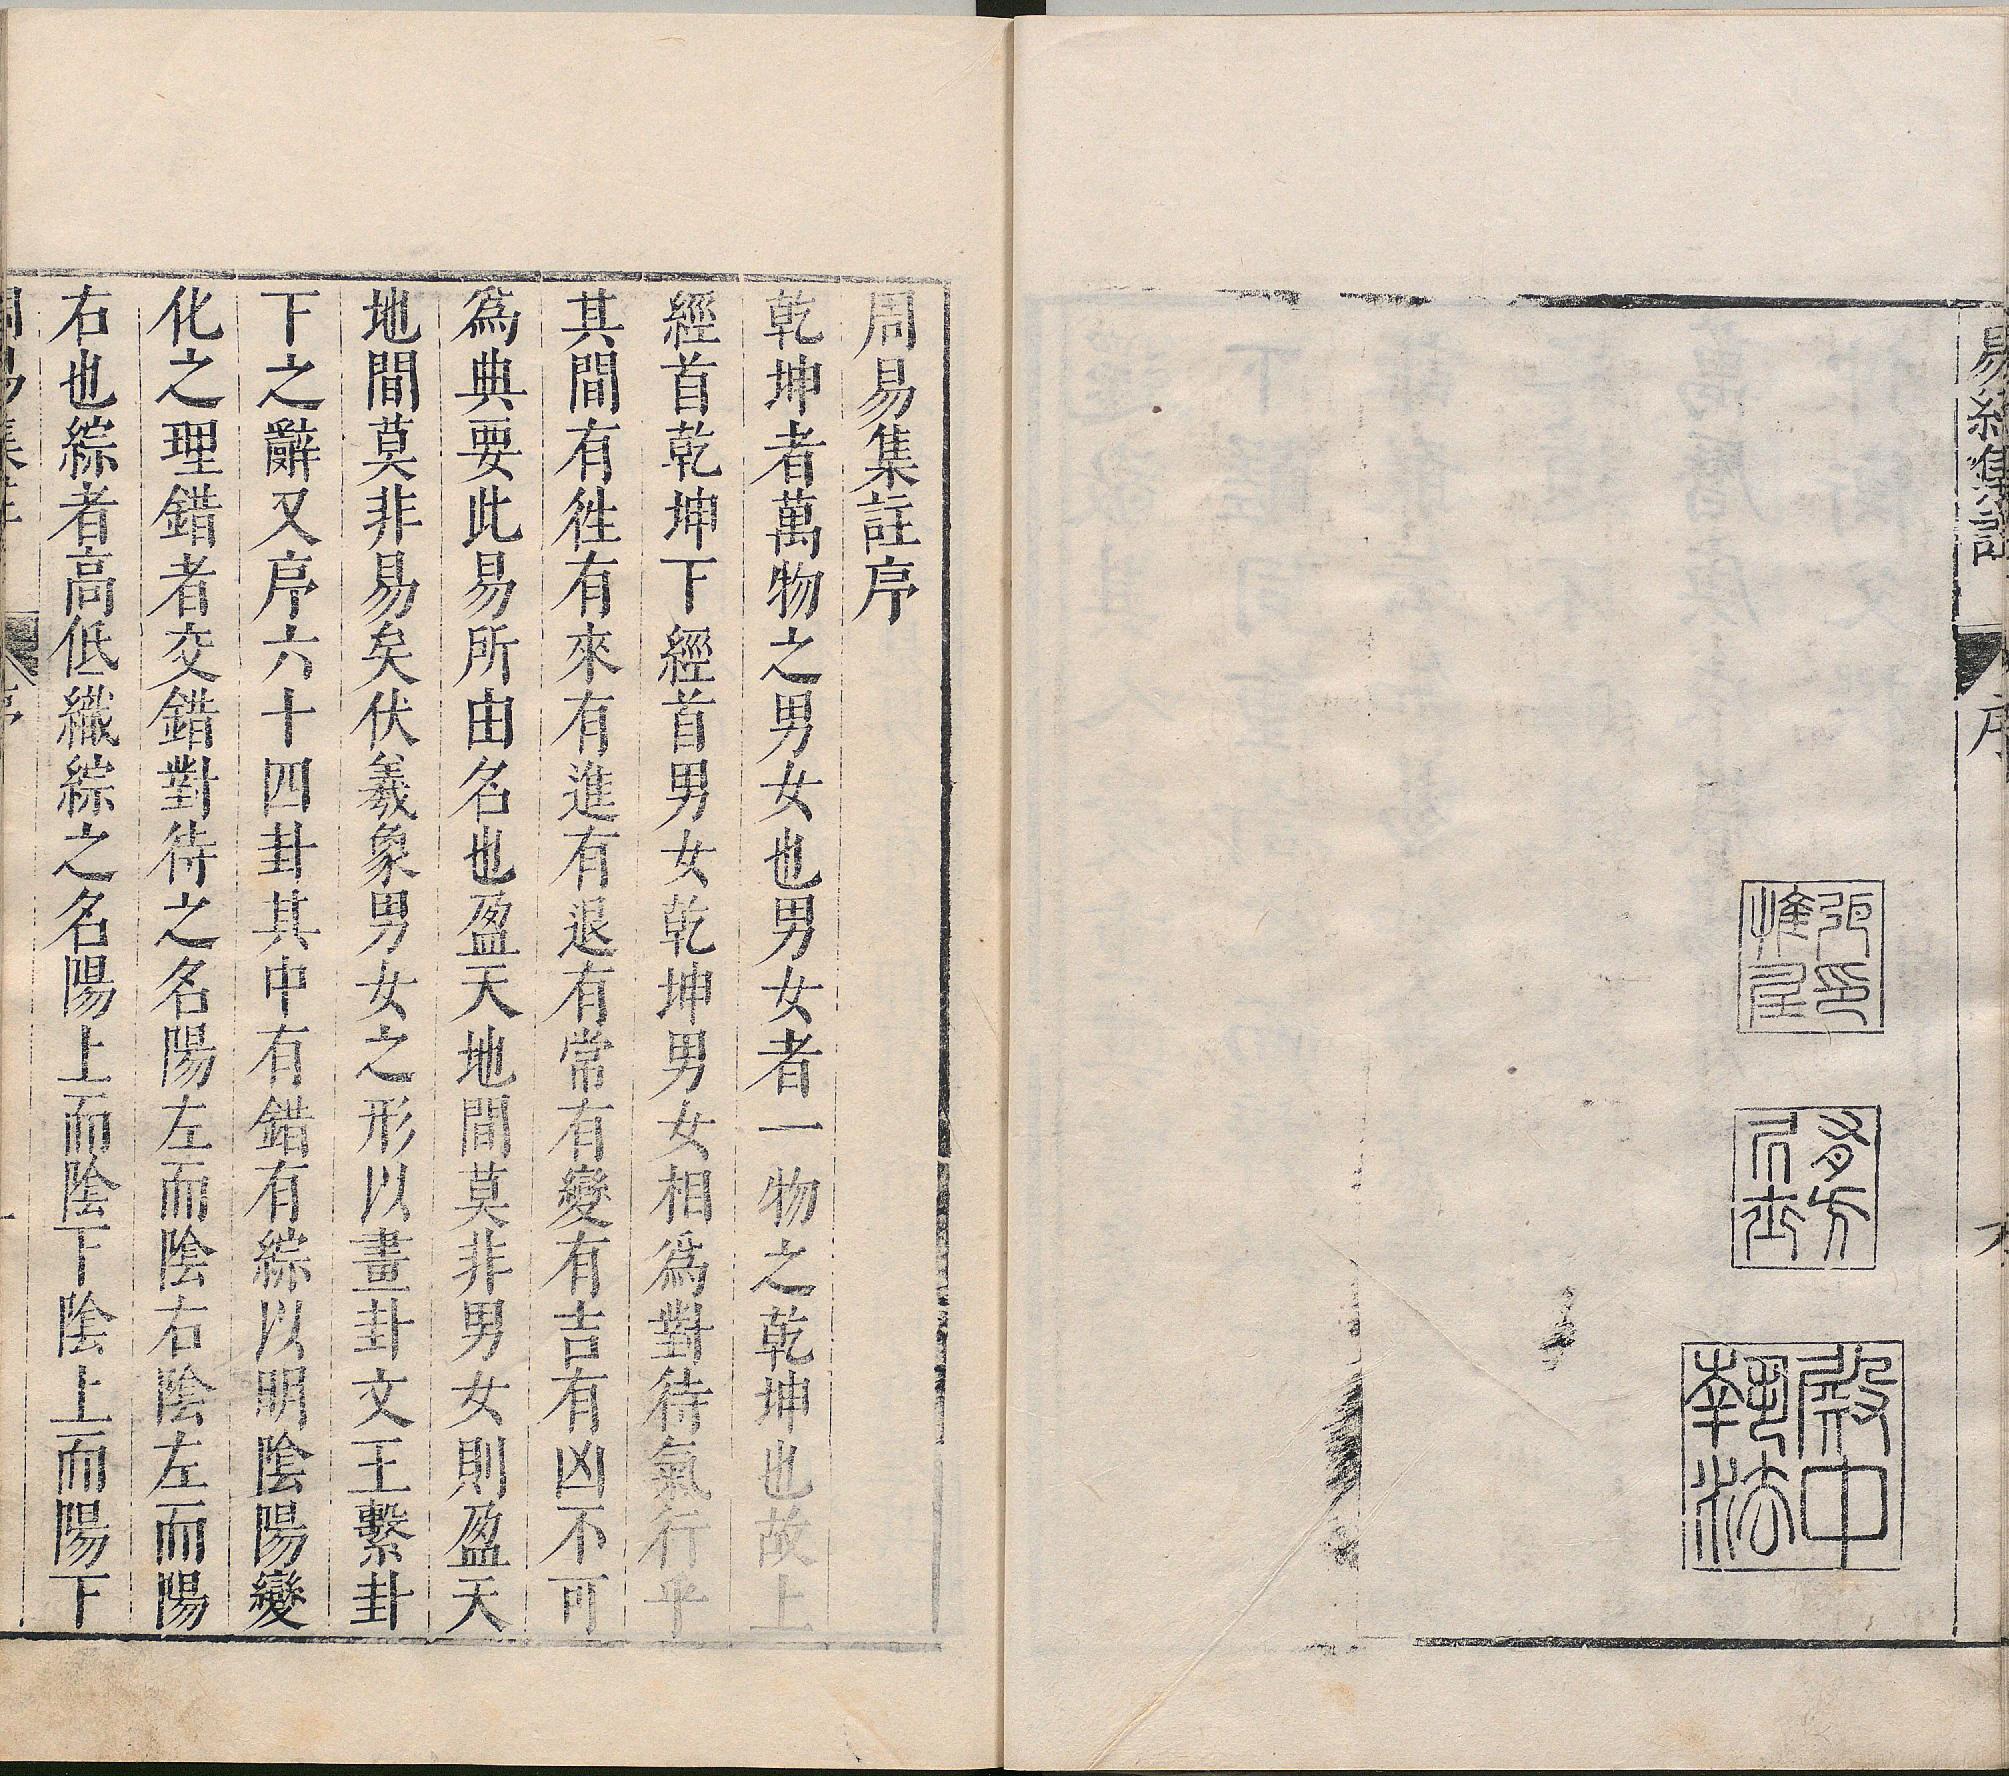 易經集註
序
張惟
印任
殿中
執法
周易集註序
乾坤者萬物之男女也男女者一物之乾坤也故上
經首乾坤下經首男女乾坤男女相爲對待氣行乎
其間有徃有來有進有退有常有變有吉有凶不可
爲典要此易所由名也盈天地間莫非男女則盈天
地間莫非易矣伏羲象男女之形以畫卦文王繫卦
下之辭又序六十四卦其中有錯有綜以明陰陽變
化之理錯者交錯對待之名陽左而陰右陰左而陽
右也綜者高低織綜之名陽上而陰下陰上而陽下
周易集註
序
一